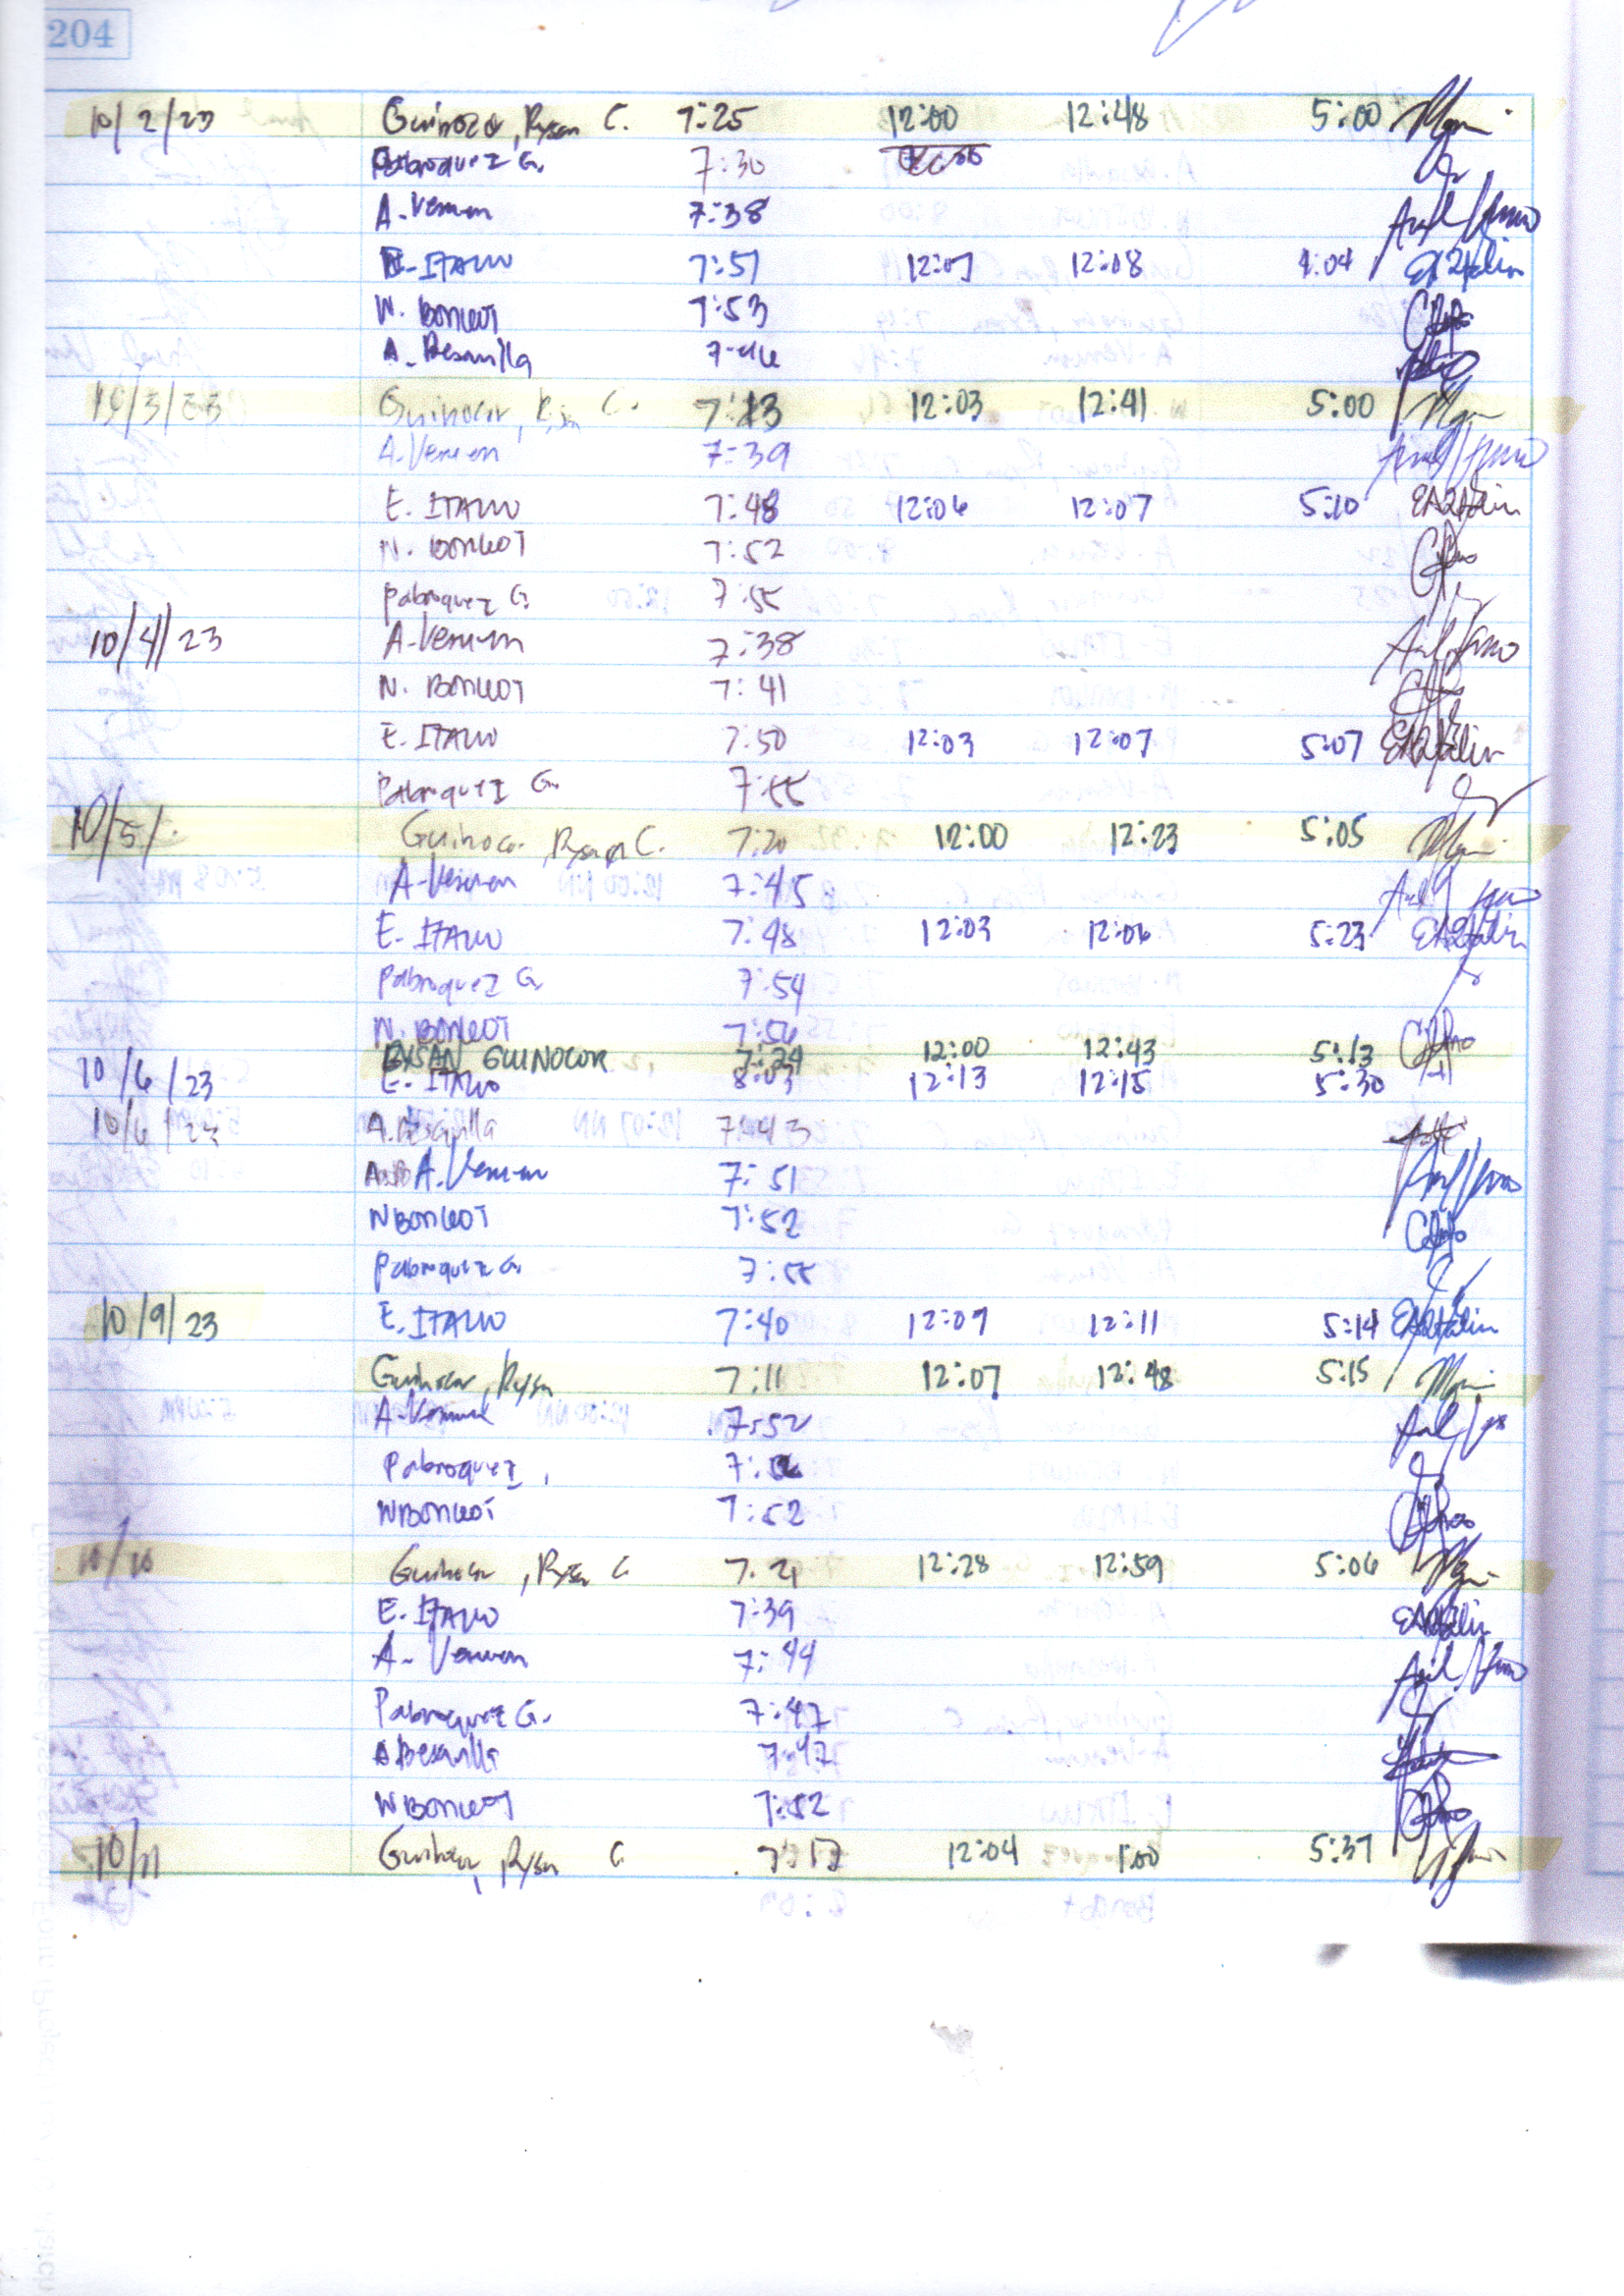 204
10/2/23 Guinocor, Rysan C. 7:25 12:00 12:48 5:00
Pabroquez G. 7:30
A. Veruen 7:38
E. ITALIO 7:51 12:07 12:08 4:04
N. BONGOT 7:53
A. Besanilla 7:46
10/3/23 Guinocor, Rysan C. 7:13 12:03 12:41 5:00
A. Veruen 7:39
E. ITALIO 7:48 12:06 12:07 5:10
N. BONGOT 7:52
Pabroquez G. 7:55
10/4/23 A. Veruen 7:38
N. BONGOT 7:41
E. ITALIO 7:50 12:03 12:07 5:07
Pabroquez G. 7:55
10/5/ Guinocor, Rysan C. 7:20 12:00 12:23 5:05
A. Veruen 7:45
E. ITALIO 7:48 12:03 12:06 5:23
Pabroquez G. 7:54
N. BONGOT 7:56
RYSAN GUINOCOR 7:24 12:00 12:43 5:13
10/6/23 E. ITALIO 8:03 12:13 12:15 5:30
10/6/23 A. Besanilla 7:43
A. Veruen 7:51
N BONGOT 7:52
Pabroquez G. 7:55
10/9/23 E. ITALIO 7:40 12:09 12:11 5:14
Guinocor, Rysan 7:11 12:07 12:48 5:15
A. Veruen 7:52
Pabroquez,
N BONGOT 7:52
10/10 Guinocor, Rysan C 7:21 12:28 12:59 5:06
E. ITALIO 7:39
A. Veruen 7:44
Pabroquez G. 7:47
A Besanilla 7:47
N BONGOT 7:52
10/11 Guinocor, Rysan C. 7:17 12:04 1:00 5:37